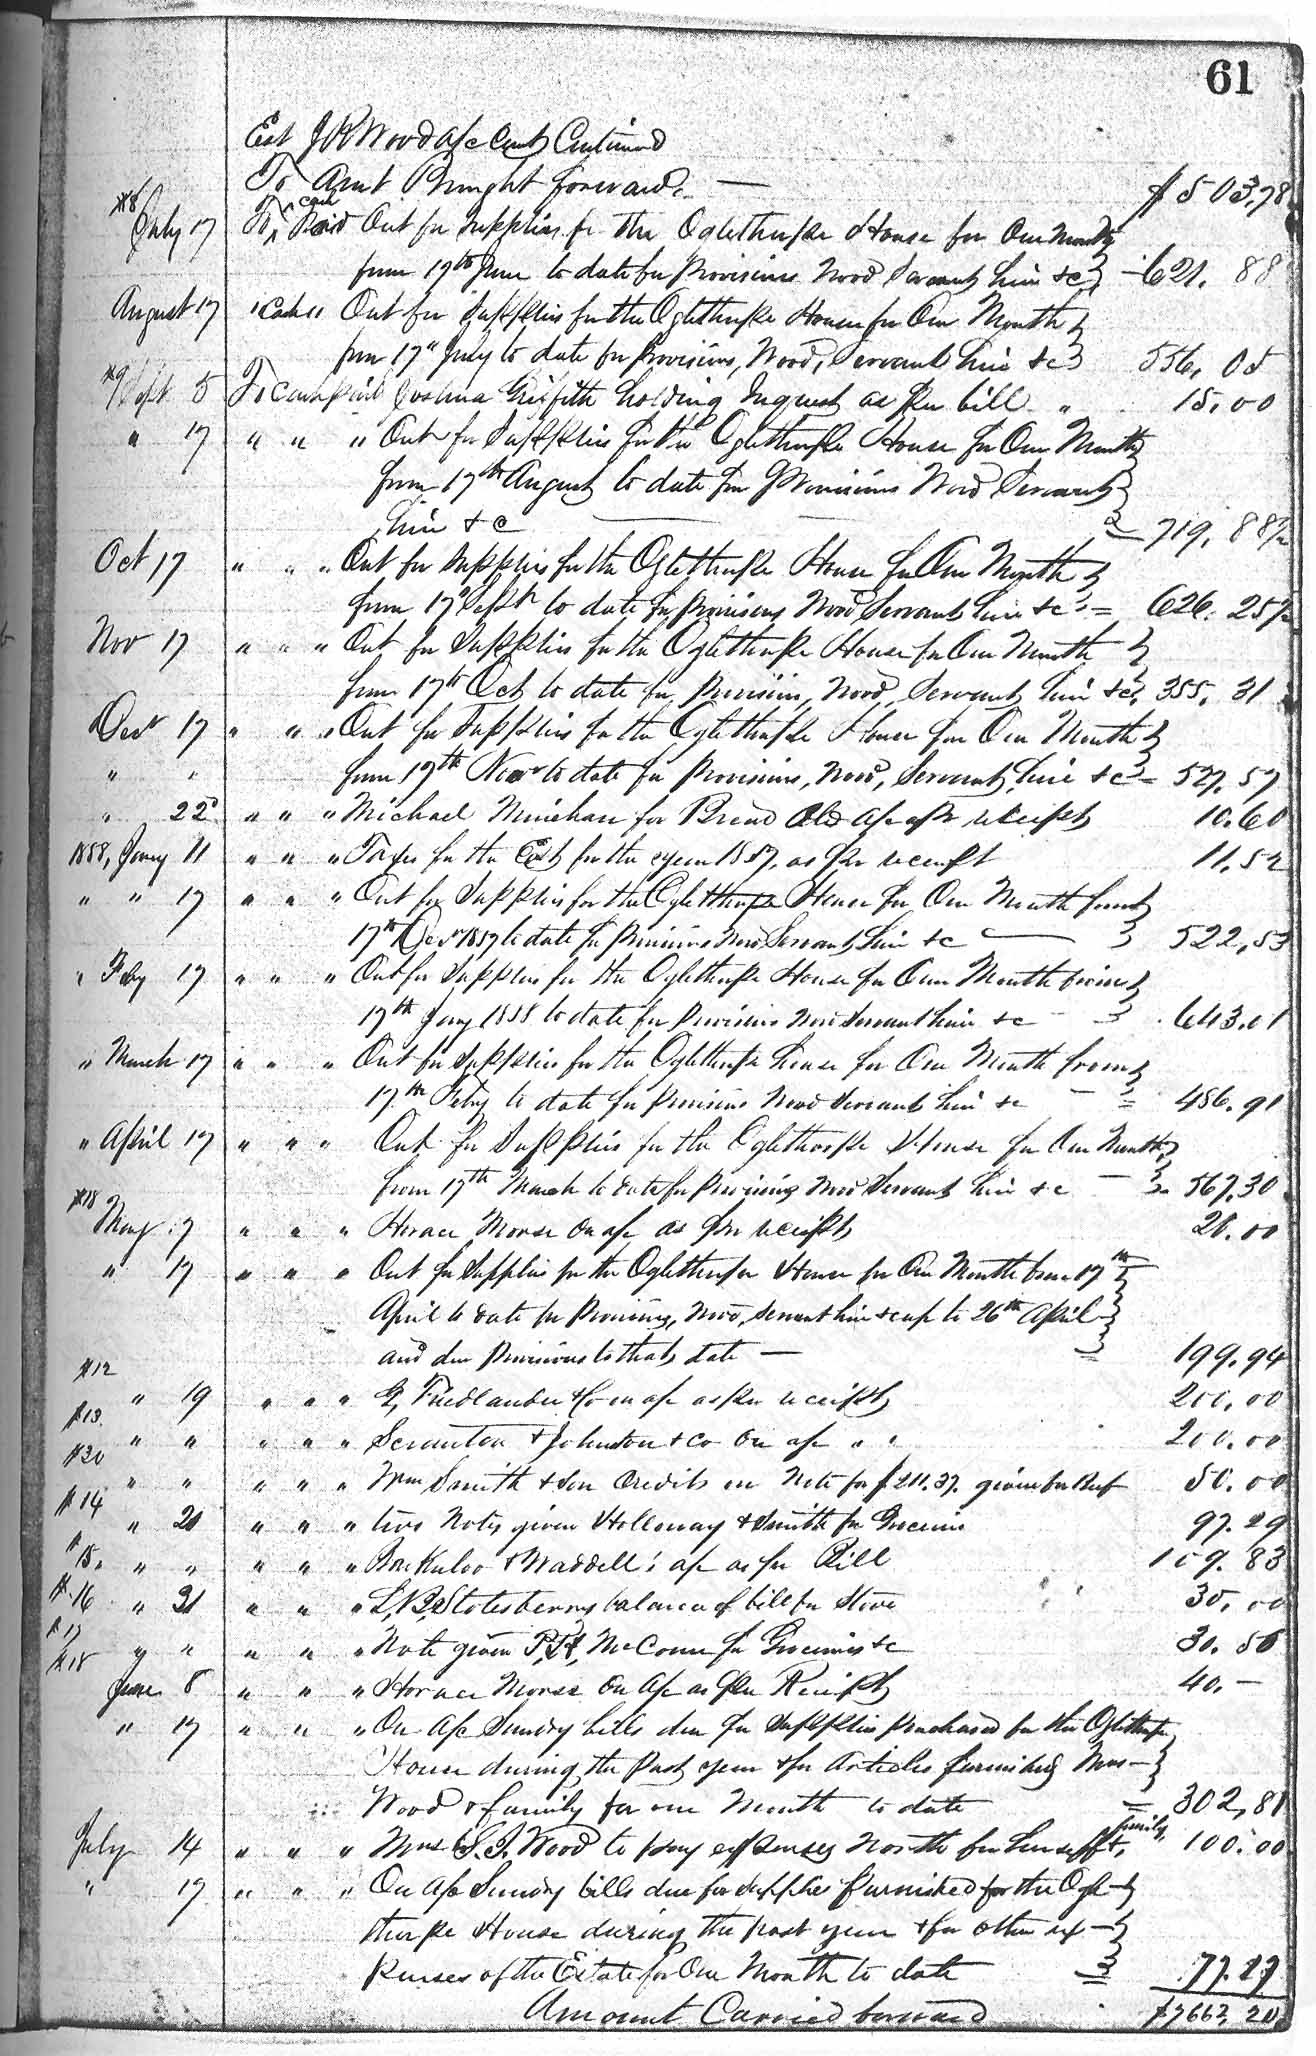 61
Est J R Wood a/c Curt Continued
To Amt Brought forward — $503,78
#8 July 17 To cash Paid Out for Supplies for the Oglethorpe House for One Month
from 17th June to date for Provisions Wood Servants hire &c 621.88
August 17 " Cash " Out for Supplies for the Oglethorpe House for One Month
from 17" July to date for Provisions, Wood, Servants hire &c 556,05
#9 Sept 5 To Cash paid Joshua Griffith holding Inquest as per bill " 15,00
" 17 " " " Out for Supplies for the Oglethorpe House for One Month
from 17th August to date for Provisions Wood Servants
hire &c — 719,88½
Oct 17 " " " Out for Supplies for the Oglethorpe House for One Month
from 17 Sept to date for provisions Wood Servants hire &c = 626.25½
Nov 17 " " " Out for Supplies for the Oglethorpe House for One Month
from 17th Oct to date for provisions, Wood, Servants hire &c, 355,31
Decr 17 " " " Out for Supplies for the Oglethorpe House for One Month
" " from 17th Novr to date for Provisions, Wood, Servants hire &c = 527.57
" 22d " " " Michael Minehan for Bread Old a/c as pr receipt 10.60
1858, Jany 11 " " " Taxes for the Est for the year 1857, as per receipt 11,52
" " 17 " " " Out for Supplies for the Oglethorpe House for One Month from
17th Decr 1857 to date for provisions Wood Servants hire &c — 522,53
" Feby 17 " " " Out for Supplies for the Oglethorpe House for One Month from
17th Jany 1858 to date for provisions Wood Servants hire &c 643.01
" March 17 " " " Out for Supplies for the Oglethorpe House for One Month from
17th Feby to date for provisions Wood Servants hire &c — = 486.91
" April 17 " " " Out for Supplies for the Oglethorpe House for One Month
from 17th March to date for Provisions Wood Servants hire &c — 567,30
#18 May 7 " " " Horace Morse on a/c as per receipt 20.00
" 17 " " " Out for Supplies for the Oglethorpe House for One Month from 17th
April to date for Provisions, Wood, Servants hire &c up to 26th April
and due Provisions to that date — 199.94
#12 " 19 " " " Friedlander & Co on a/c as per receipt 200.00
#13 " " " " " Scranton & Johnston & Co On a/c " " 200.00
#20 " " " " " Wm Smith & Son Credit on Note for $211.37. given for Beef 50.00
#14 " 20 " " " two Notes given Holloway & Smith for Groceries 97.29
#15. " " " " " & Waddell's a/c as per Bill 109.83
#16 " 31 " " " L, B, Stotesberry balance of bill for Stove 30,00
#17 " " " " " Note given for Groceries &c 30.50
#18 June 8 " " " Horace Morse On a/c as per Receipt 40.—
" 17 " " " On a/c Sundry bills due for Supplies purchased for the Oglethorpe
House during the Past year & for Articles furnished Mrs
Wood & family for one Month to date = 302,81
July 14 " " " Mrs S. J. Wood to pay expenses North for herself & family, 100.00
" 17 " " " On a/c Sundry bills due for Supplies furnished for the Ogle-
thorpe House during the past year & for other ex-
penses of the Estate for One Month to date 77.27
Amount Carried forward $7662,20